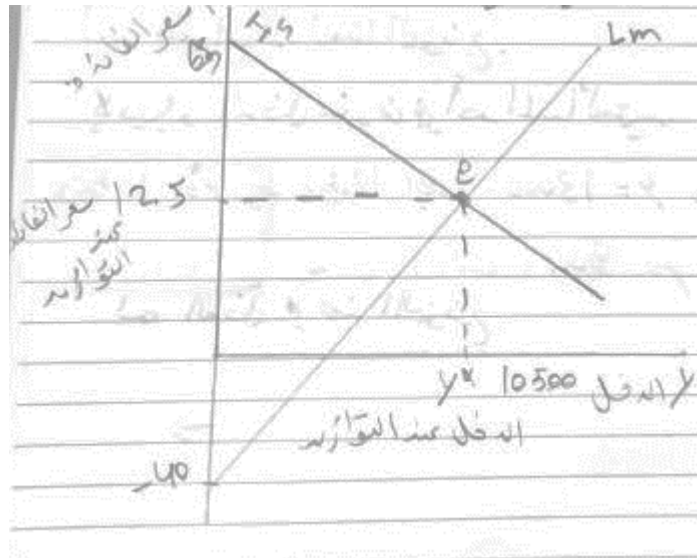 سعر الفائدة
Is
65
Lm
e
12.5
سعر الفائدة
عند
التوازن
y* 10500 الدخل y
الدخل عند التوازن
-40